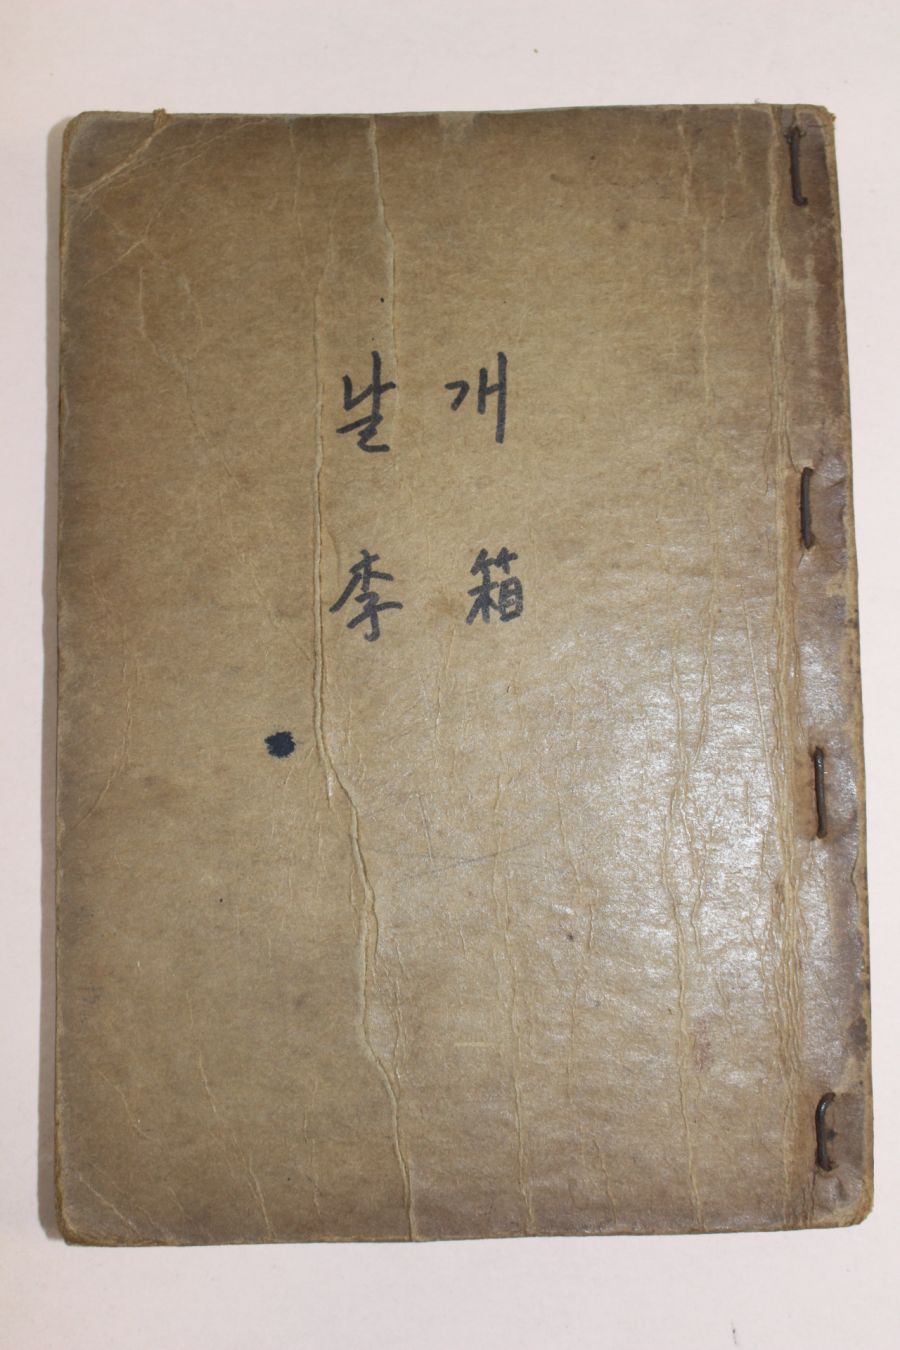 날 개
李 箱